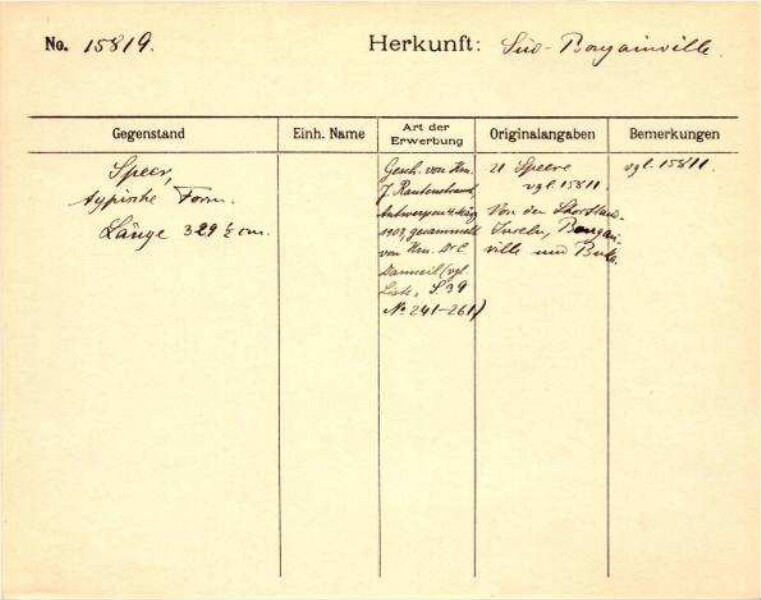 No. 15819. Herkunft: Süd-Bougainville.
Gegenstand
Einh. Name
Art der Erwerbung
Originalangaben
Bemerkungen
Speer,
typische Form.
Länge 329 ½ cm.
Gesch. von Hrn.
J. Rautenstrauch,
Antwerpen 4. März
1903, gesammelt
von Hrn. Dr C
Danneil (vgl.
Liste, S. 39
No 241-261)
21 Speere
vgl. 15811.
Von den Shortland-
Inseln, Bougain-
ville und Buka.
vgl. 15811.